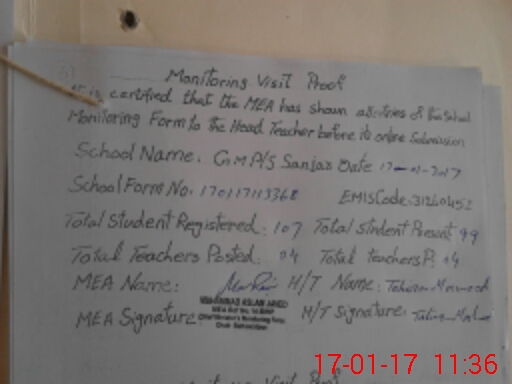 Monitoring Visit Proof
It is certified that the MEA has shown all entries of the school
Monitoring Form to the Head Teacher before its online Submission
School Name. G.M.P/S Sanjar Date 17-01-2017
School Form No. 170117113368 EMIS Code: 31260452
Total Student Registered: 107 Total Student Present 99
Total Teachers Posted: 04 Total teachers P: 04
MEA Name: H/T Name: Tahira
MUHAMMAD ASLAM
MEA Signature: H/T Signature: Tahira
17-01-17 11:36
Monitoring Visit Proof